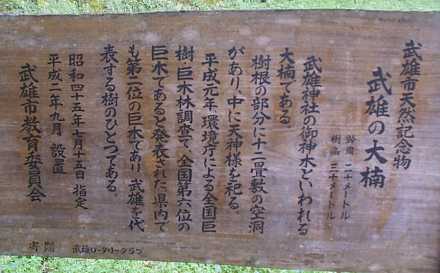 武雄市天然記念物
武雄の大楠
幹周 二十メートル
樹高 二十メートル
武雄神社の御神木といわれる
大楠である。
樹根の部分に十二畳敷の空洞
があり、中に天神様を祀る。
平成元年環境庁による全国巨
樹・巨木林調査で、全国第六位の
巨木であると発表された。県内で
も第二位の巨木であり、武雄を代
表する樹のひとつである。
昭和四十五年七月十五日 指定
平成二年九月 設置
武雄市教育委員会
寄贈 武雄ロータリークラブ